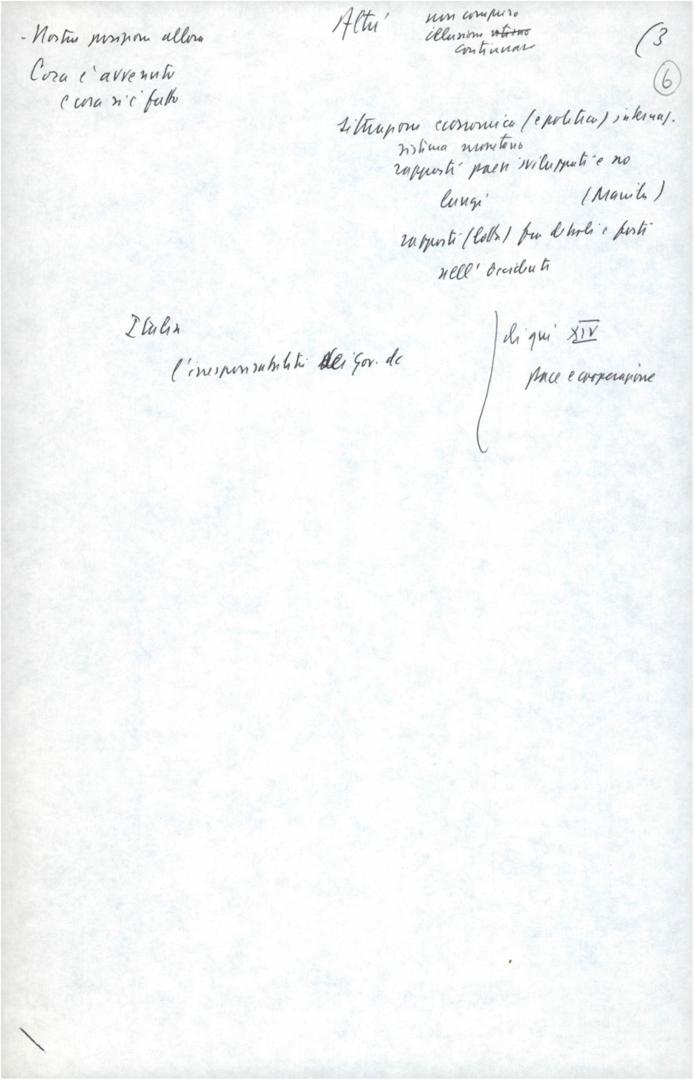 - Nostra posizione allora
Cosa è avvenuto
e cosa si è fatto
Altri
non compiuto
illusioni
continuare
(3
6
situazione economica (e politica) internaz.
sistema monetario
rapporti paesi sviluppati e no
(Manila)
rapporti (lotta) fra deboli e forti
nell'Occidente
Italia
l'irresponsabilità dei Gov. dc
di qui XIV
pace e cooperazione